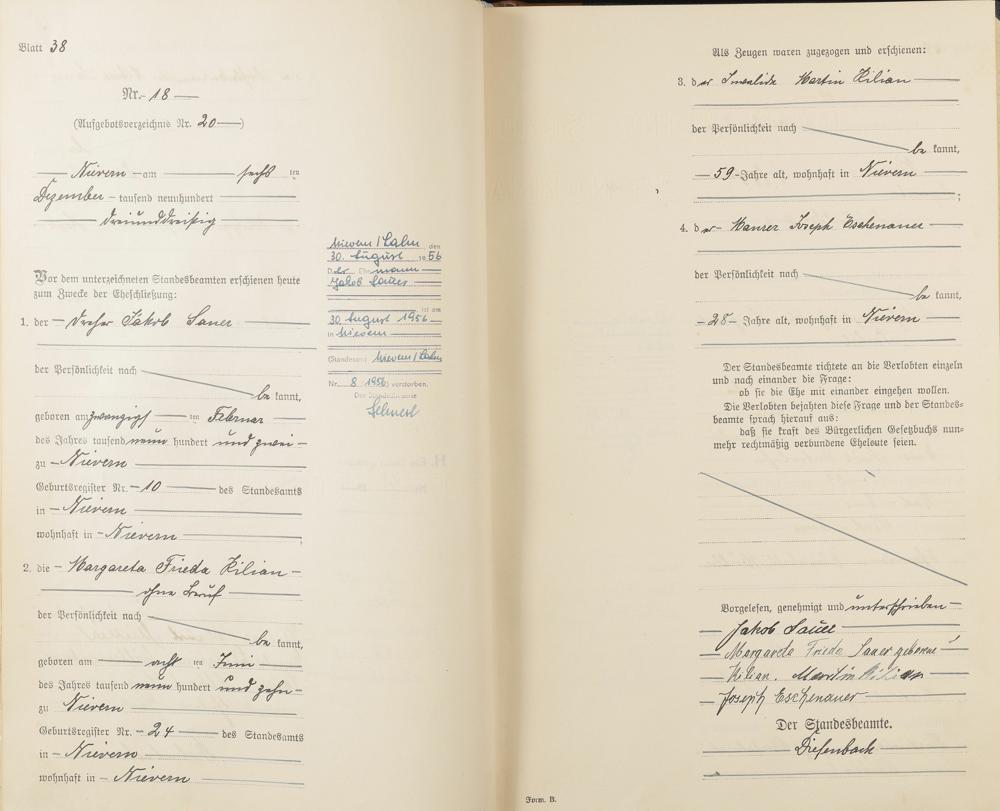 Blatt 38
Nr. 18
(Aufgebotsverzeichnis Nr. 20)
Nievern am sechs ten
Dezember tausend neunhundert
dreiunddreißig
Vor dem unterzeichneten Standesbeamten erschienen heute
zum Zwecke der Eheschließung:
1. der Dreher Jakob Sauer
der Persönlichkeit nach
be kannt,
geboren am zwanzigst ten Februar
des Jahres tausend neun hundert und zwei
zu Nievern
Geburtsregister Nr. 10 des Standesamts
in Nievern
wohnhaft in Nievern,
2. die Margareta Frieda Kilian
ohne Beruf
der Persönlichkeit nach
be kannt,
geboren am acht ten Juni
des Jahres tausend neun hundert und zehn
zu Nievern
Geburtsregister Nr. 24 des Standesamts
in Nievern
wohnhaft in Nievern
Nievern / Lahn den
30. August 1956
Der Ehemann
Jakob Sauer
ist am
30 August 1956
in Nievern
(Standesamt Nievern / Lahn
Nr. 8 1956) verstorben.
Der Standesbeamte
Als Zeugen waren zugezogen und erschienen:
3. der Invalide Martin Kilian
der Persönlichkeit nach
be kannt,
59 Jahre alt, wohnhaft in Nievern
;
4. der Maurer Joseph Eschenauer
der Persönlichkeit nach
be kannt,
28 Jahre alt, wohnhaft in Nievern
Der Standesbeamte richtete an die Verlobten einzeln
und nach einander die Frage:
ob sie die Ehe mit einander eingehen wollen.
Die Verlobten bejahten diese Frage und der Standes-
beamte sprach hierauf aus:
daß sie kraft des Bürgerlichen Gesetzbuchs nun-
mehr rechtmäßig verbundene Eheleute seien.
Vorgelesen, genehmigt und unterschrieben
Jakob Sauer
Margareta Frieda Sauer geborene
Kilian. Martin Kilian
Joseph Eschenauer
Der Standesbeamte.
Diefenbach
Form. B.